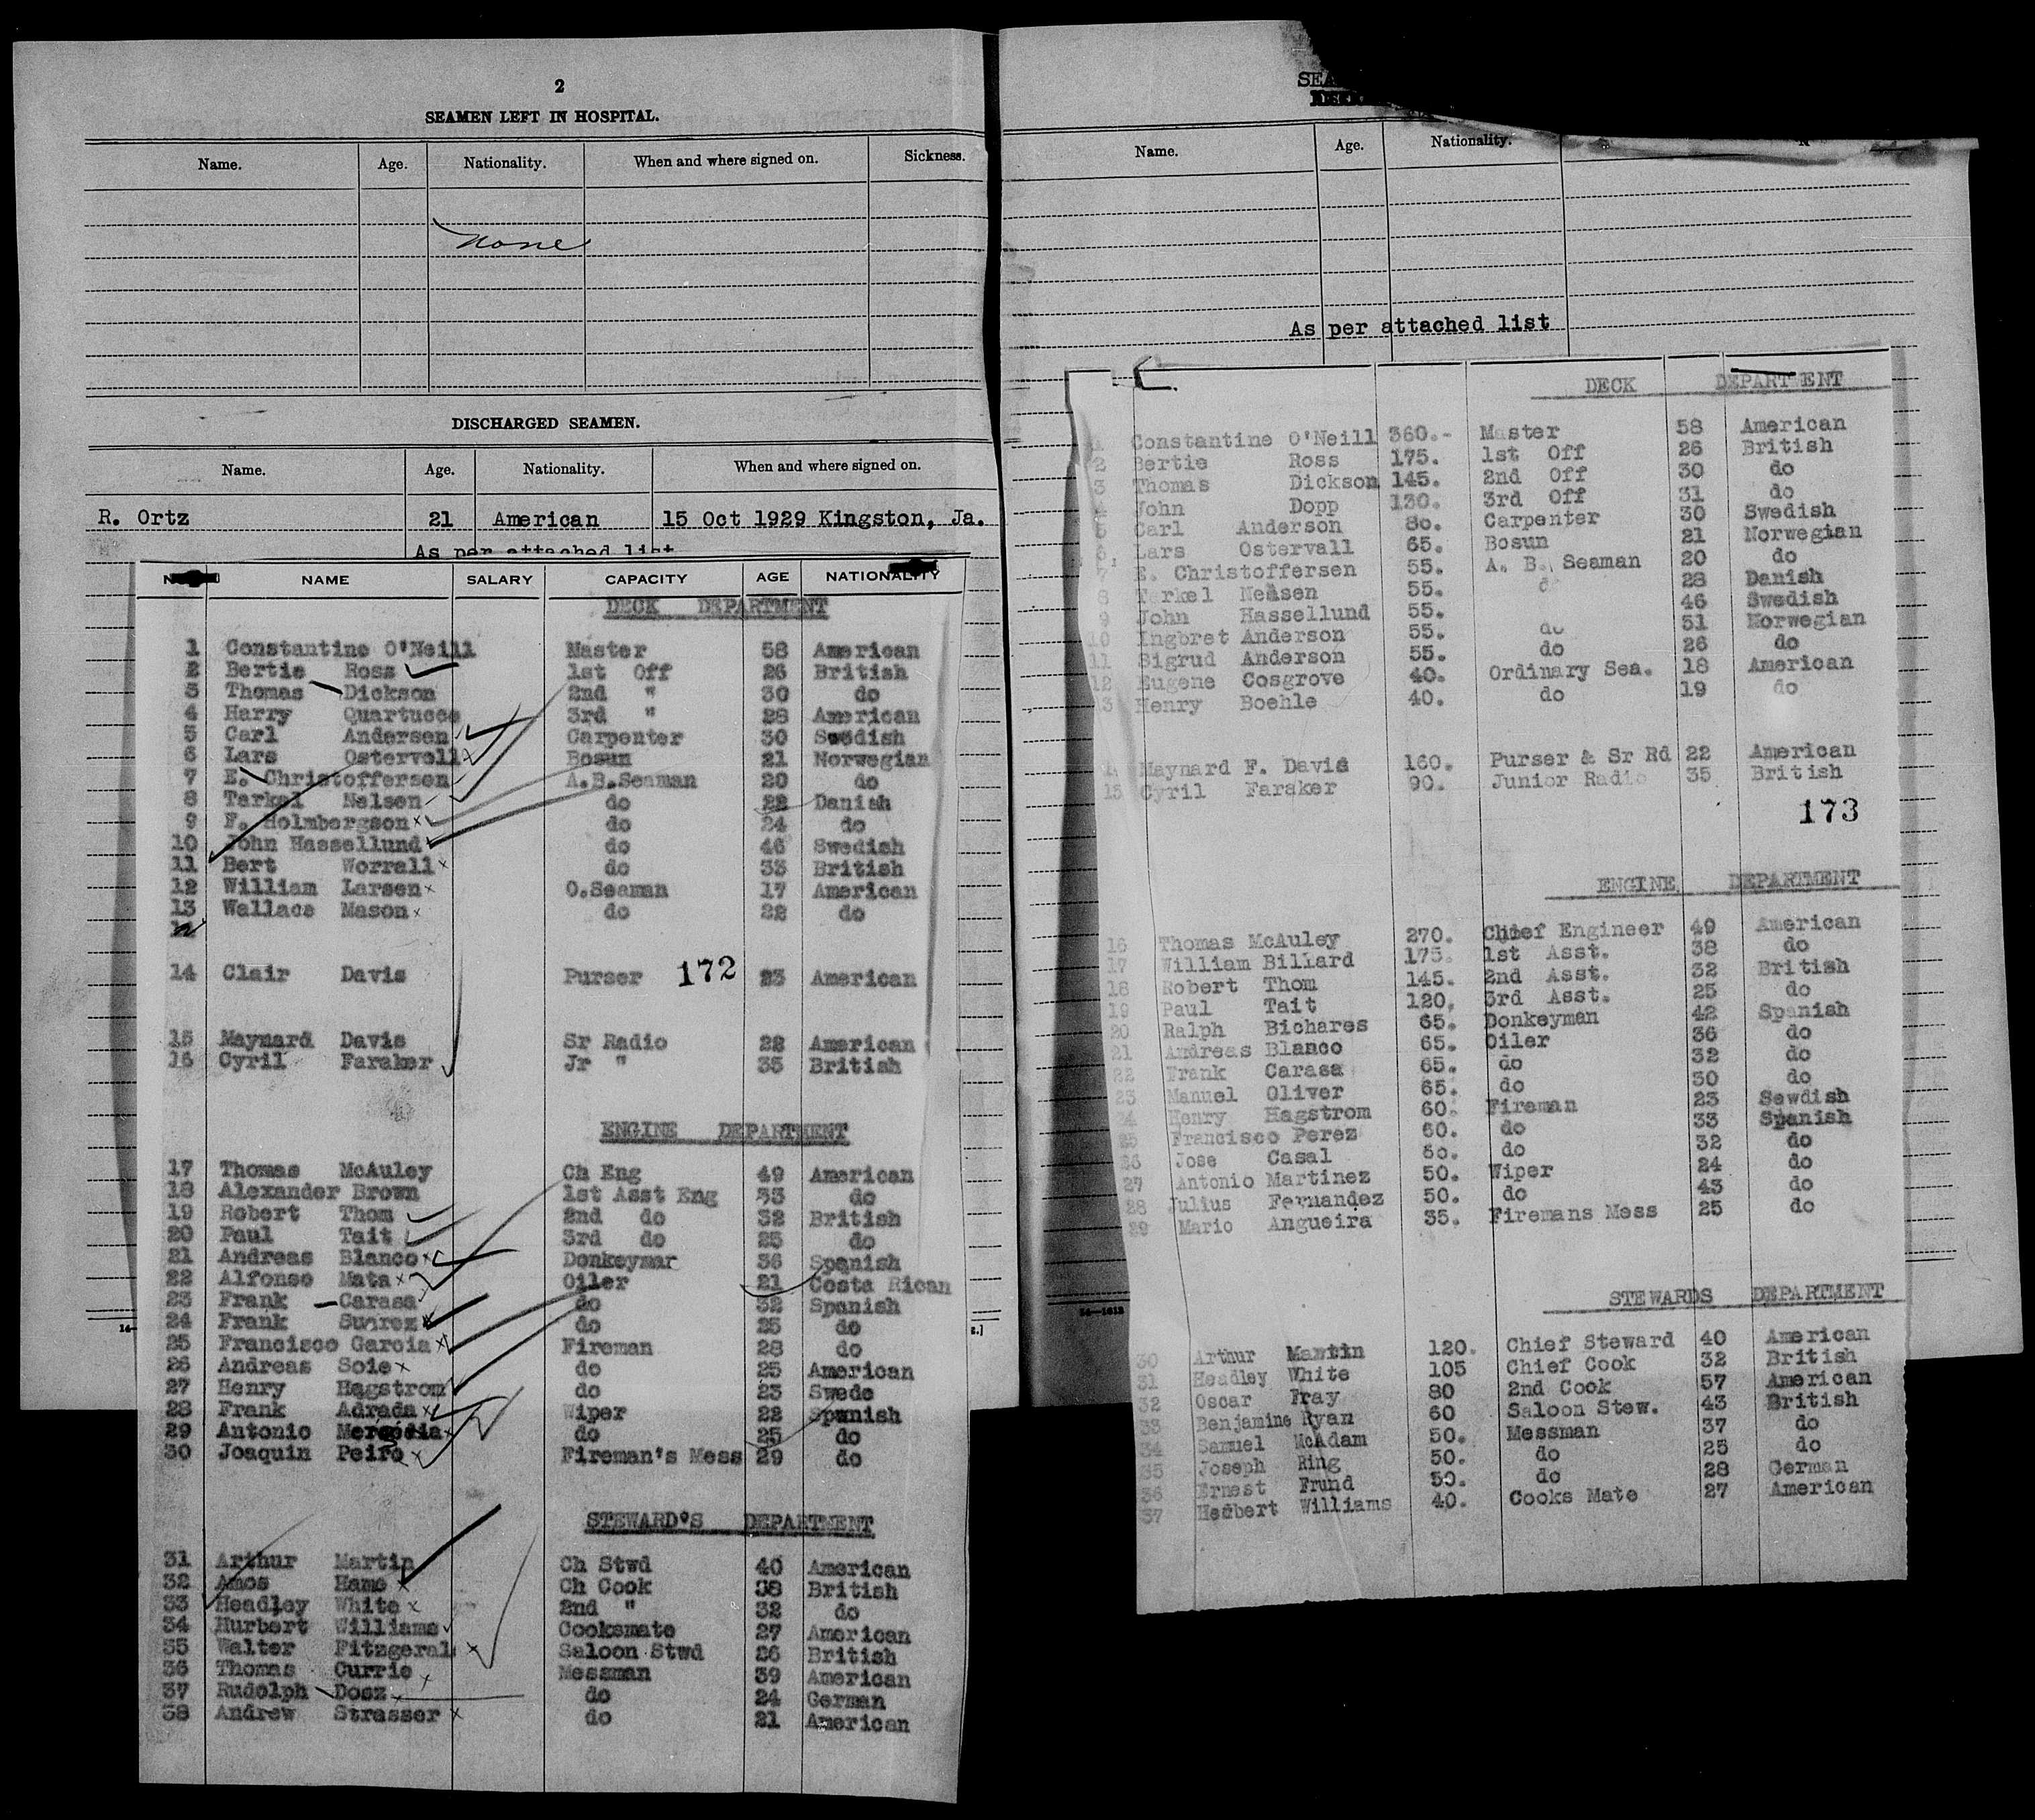 2
SEAMEN LEFT IN HOSPITAL.
Name. Age. Nationality. When and where signed on. Sickness.
None
DISCHARGED SEAMEN.
Name. Age. Nationality. When and where signed on.
R. Ortz 21 American 15 Oct 1929 Kingston, Ja.
As per attached list
NAME SALARY CAPACITY AGE NATIONALITY
DECK DEPARTMENT
1 Constantine O'Neill Master 58 American
2 Bertie Ross 1st Off 26 British
3 Thomas Dickson 2nd " 30 do
4 Harry Quartucce 3rd " 28 American
5 Carl Andersen Carpenter 30 Swedish
6 Lars Ostervoll Bosun 21 Norwegian
7 E. Christoffersen A.B.Seaman 20 do
8 Terkel Nelsen do 22 Danish
9 F. Holmbergson do 24 do
10 John Hassellund do 46 Swedish
11 Bert Worrall do 33 British
12 William Larsen O.Seaman 17 American
13 Wallace Mason do 22 do
14 Clair Davis Purser 23 American
172
15 Maynard Davis Sr Radio 22 American
16 Cyril Faraker Jr " 35 British
ENGINE DEPARTMENT
17 Thomas McAuley Ch Eng 49 American
18 Alexander Brown 1st Asst Eng 33 do
19 Robert Thom 2nd do 32 British
20 Paul Tait 3rd do 25 do
21 Andreas Blanco Donkeyman 36 Spanish
22 Alfonso Mata Oiler 21 Costa Rican
23 Frank Carasa do 32 Spanish
24 Frank Suarez do 25 do
25 Francisco Garcia Fireman 28 do
26 Andreas Soie do 25 American
27 Henry Hagstrom do 23 Swede
28 Frank Adrada Wiper 22 Spanish
29 Antonio do 25 do
30 Joaquin Peiro Fireman's Mess 29 do
STEWARD'S DEPARTMENT
31 Arthur Martin Ch Stwd 40 American
32 Amos Hame Ch Cook 38 British
33 Headley White 2nd " 32 do
34 Hurbert Williams Cooksmate 27 American
35 Walter Fitzgeral Saloon Stwd 26 British
36 Thomas Currie Messman 39 American
37 Rudolph Dosz do 24 German
38 Andrew Strasser do 21 American
SEA
Name. Age. Nationality.
As per attached list
DECK DEPARTMENT
1 Constantine O'Neill 360.- Master 58 American
2 Bertie Ross 175. 1st Off 26 British
3 Thomas Dickson 145. 2nd Off 30 do
4 John Dopp 130. 3rd Off 31 do
5 Carl Anderson 80. Carpenter 30 Swedish
6 Lars Ostervall 65. Bosun 21 Norwegian
7 E. Christoffersen 55. A. B. Seaman 20 do
8 Terkel Nelsen 55. do 28 Danish
9 John Hassellund 55. 46 Swedish
10 Ingbret Anderson 55. do 51 Norwegian
11 Sigrud Anderson 55. do 26 do
12 Eugene Cosgrove 40. Ordinary Sea. 18 American
13 Henry Boehle 40. do 19 do
Maynard F. Davis 160. Purser & Sr Rd 22 American
15 Cyril Faraker 90. Junior Radio 35 British
173
ENGINE DEPARTMENT
16 Thomas McAuley 270. Chief Engineer 49 American
17 William Billard 175. 1st Asst. 38 do
18 Robert Thom 145. 2nd Asst. 32 British
19 Paul Tait 120. 3rd Asst. 25 do
20 Ralph Bichares 65. Donkeyman 42 Spanish
21 Andreas Blanco 65. Oiler 36 do
22 Frank Carasa 65. do 32 do
23 Manuel Oliver 65. do 30 do
24 Henry Hagstrom 60. Fireman 23 Sewdish
25 Francisco Perez 60. do 33 Spanish
26 Jose Casal 60. do 32 do
27 Antonio Martinez 50. Wiper 24 do
28 Julius Fernandez 50. do 43 do
29 Mario Angueira 35. Firemans Mess 25 do
14—1613
STEWARDS DEPARTMENT
30 Arthur Martin 120. Chief Steward 40 American
31 Headley White 105 Chief Cook 32 British
32 Oscar Fray 80 2nd Cook 57 American
33 Benjamine Ryan 60 Saloon Stew. 43 British
34 Samuel McAdam 50. Messman 37 do
35 Joseph Ring 50. do 25 do
36 Ernest Frund 50. do 28 German
37 Herbert Williams 40. Cooks Mate 27 American